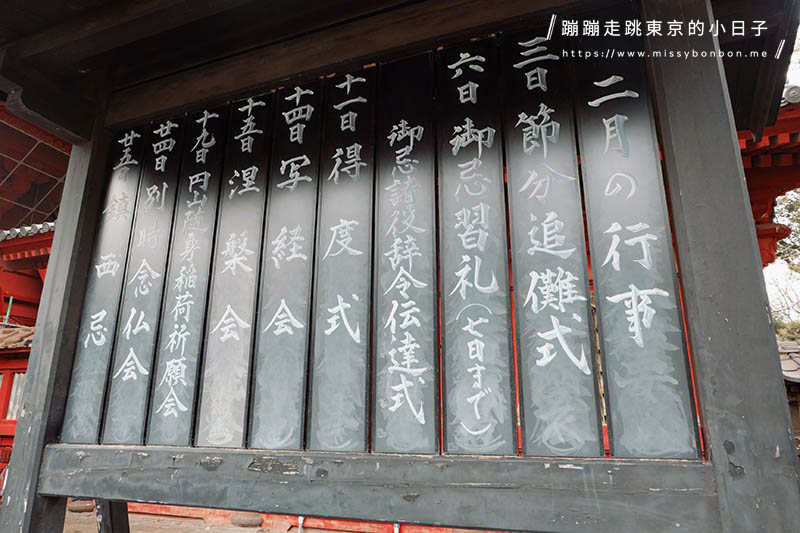 蹦蹦走跳東京的小日子
https://www.missybonbon.me
二月の行事
三日 節分追儺式
六日 御忌習礼(七日まで)
御忌諸役辞令伝達式
十一日 得度式
十四日 写経会
十五日 涅槃会
十九日 円山随身稲荷祈願会
廿四日 別時念仏会
廿五日 鎮西忌